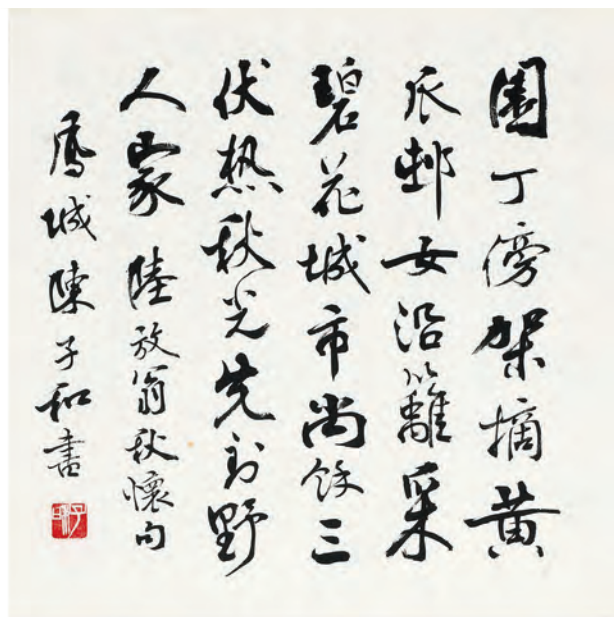 園丁傍架摘黄
瓜邨女沿籬采
碧花城市尚餘三
伏热秋光先到野
人家 陸放翁秋懷句
鳳城陳子和書